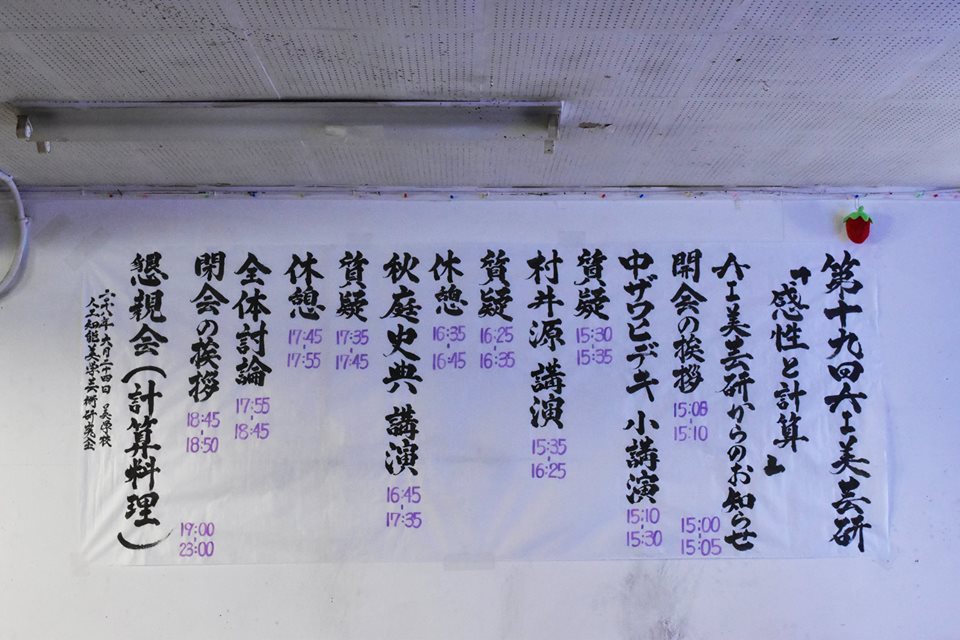 第十九回AI美芸研
『感性と計算』
AI美芸研からのお知らせ 15:00-15:05
開会の挨拶 15:05-15:10
中ザワヒデキ 小講演 15:10-15:30
質疑 15:30-15:35
村井源 講演 15:35-16:25
質疑 16:25-16:35
休憩 16:35-16:45
秋庭史典 講演 16:45-17:35
質疑 17:35-17:45
休憩 17:45-17:55
全体討論 17:55-18:45
閉会の挨拶 18:45-18:50
懇親会(計算料理) 19:00-23:00
二〇一八年六月二十四日 美学校
人工知能美学芸術研究会